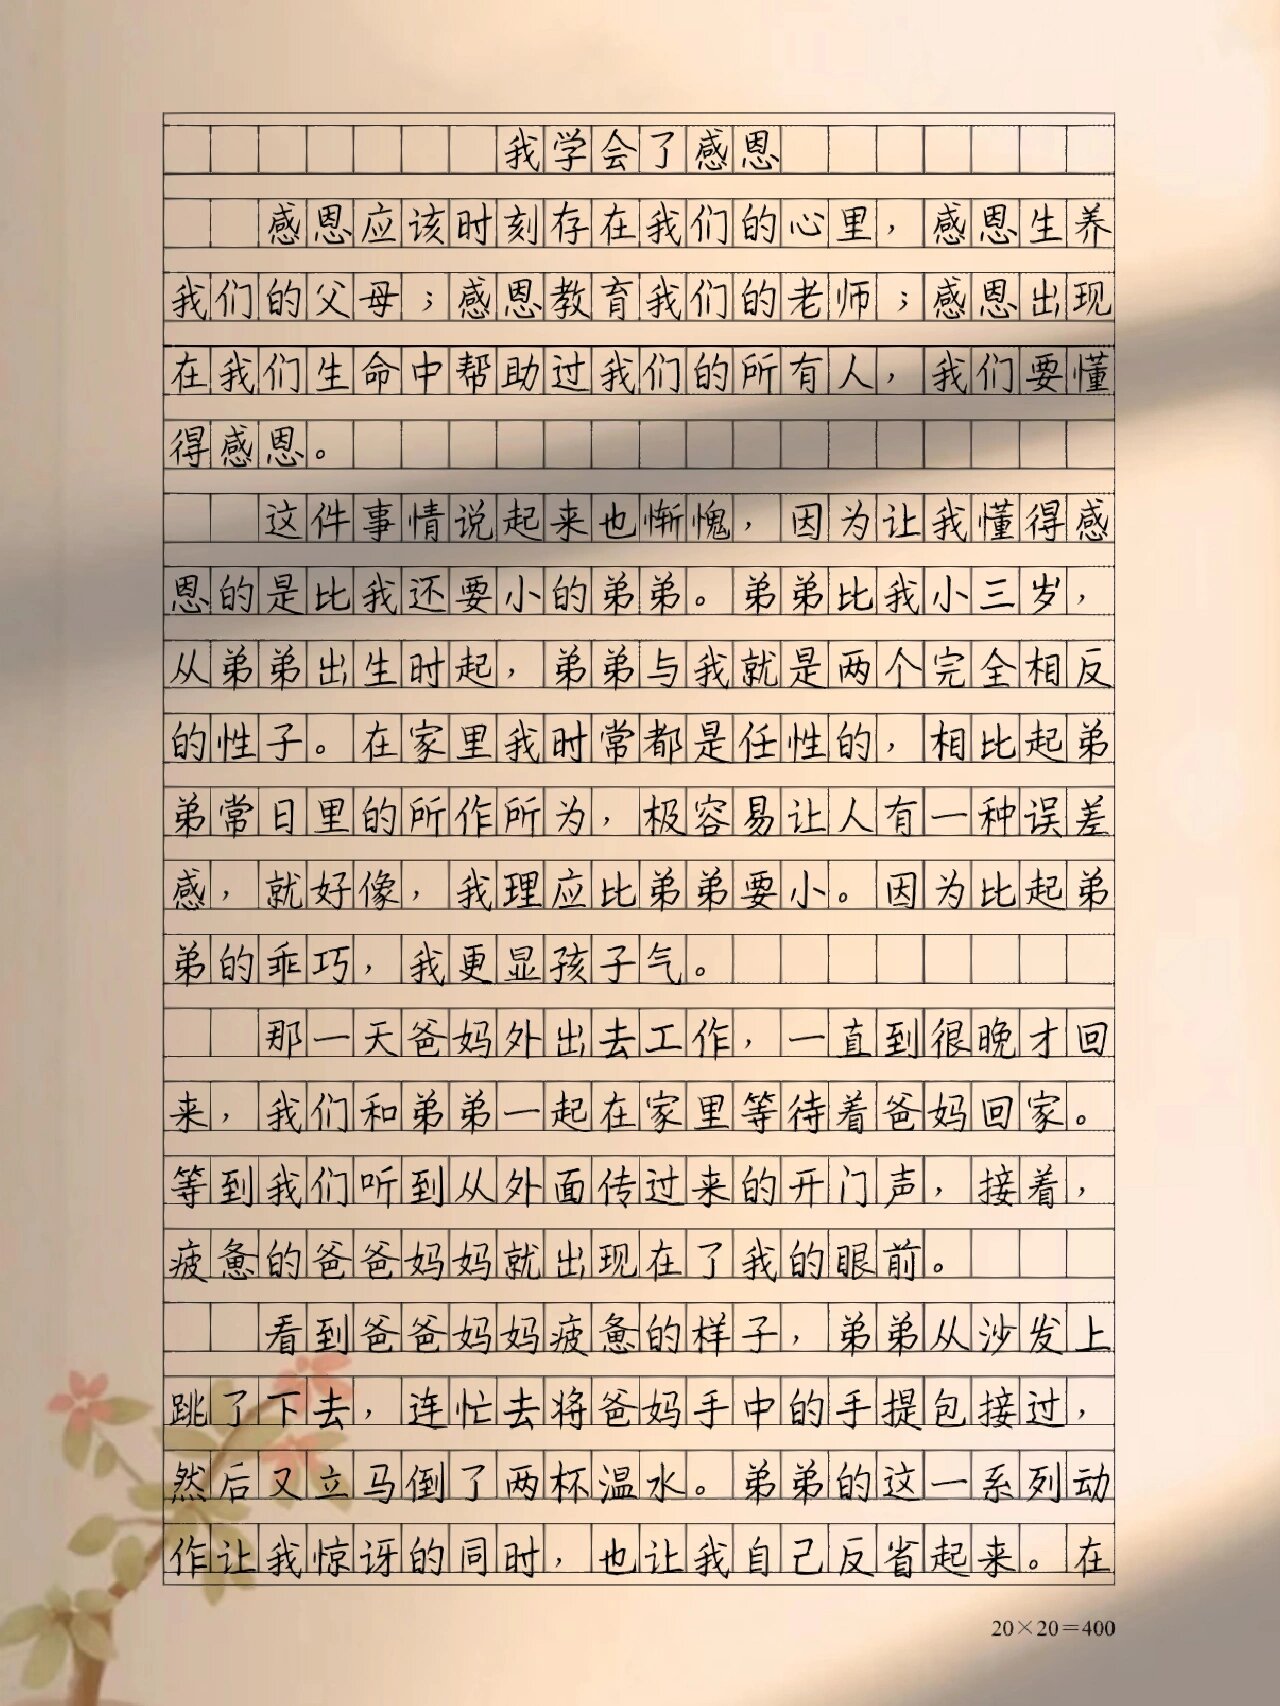 我学会了感恩
感恩应该时刻存在我们的心里，感恩生养
我们的父母；感恩教育我们的老师；感恩出现
在我们生命中帮助过我们的所有人，我们要懂
得感恩。
这件事情说起来也惭愧，因为让我懂得感
恩的是比我还要小的弟弟。弟弟比我小三岁，
从弟弟出生时起，弟弟与我就是两个完全相反
的性子。在家里我时常都是任性的，相比起弟
弟常日里的所作所为，极容易让人有一种误差
感，就好像，我理应比弟弟要小。因为比起弟
弟的乖巧，我更显孩子气。
那一天爸妈外出去工作，一直到很晚才回
来，我们和弟弟一起在家里等待着爸妈回家。
等到我们听到从外面传过来的开门声，接着，
疲惫的爸爸妈妈就出现在了我的眼前。
看到爸爸妈妈疲惫的样子，弟弟从沙发上
跳了下去，连忙去将爸妈手中的手提包接过，
然后又立马倒了两杯温水。弟弟的这一系列动
作让我惊讶的同时，也让我自己反省起来。在
20×20=400